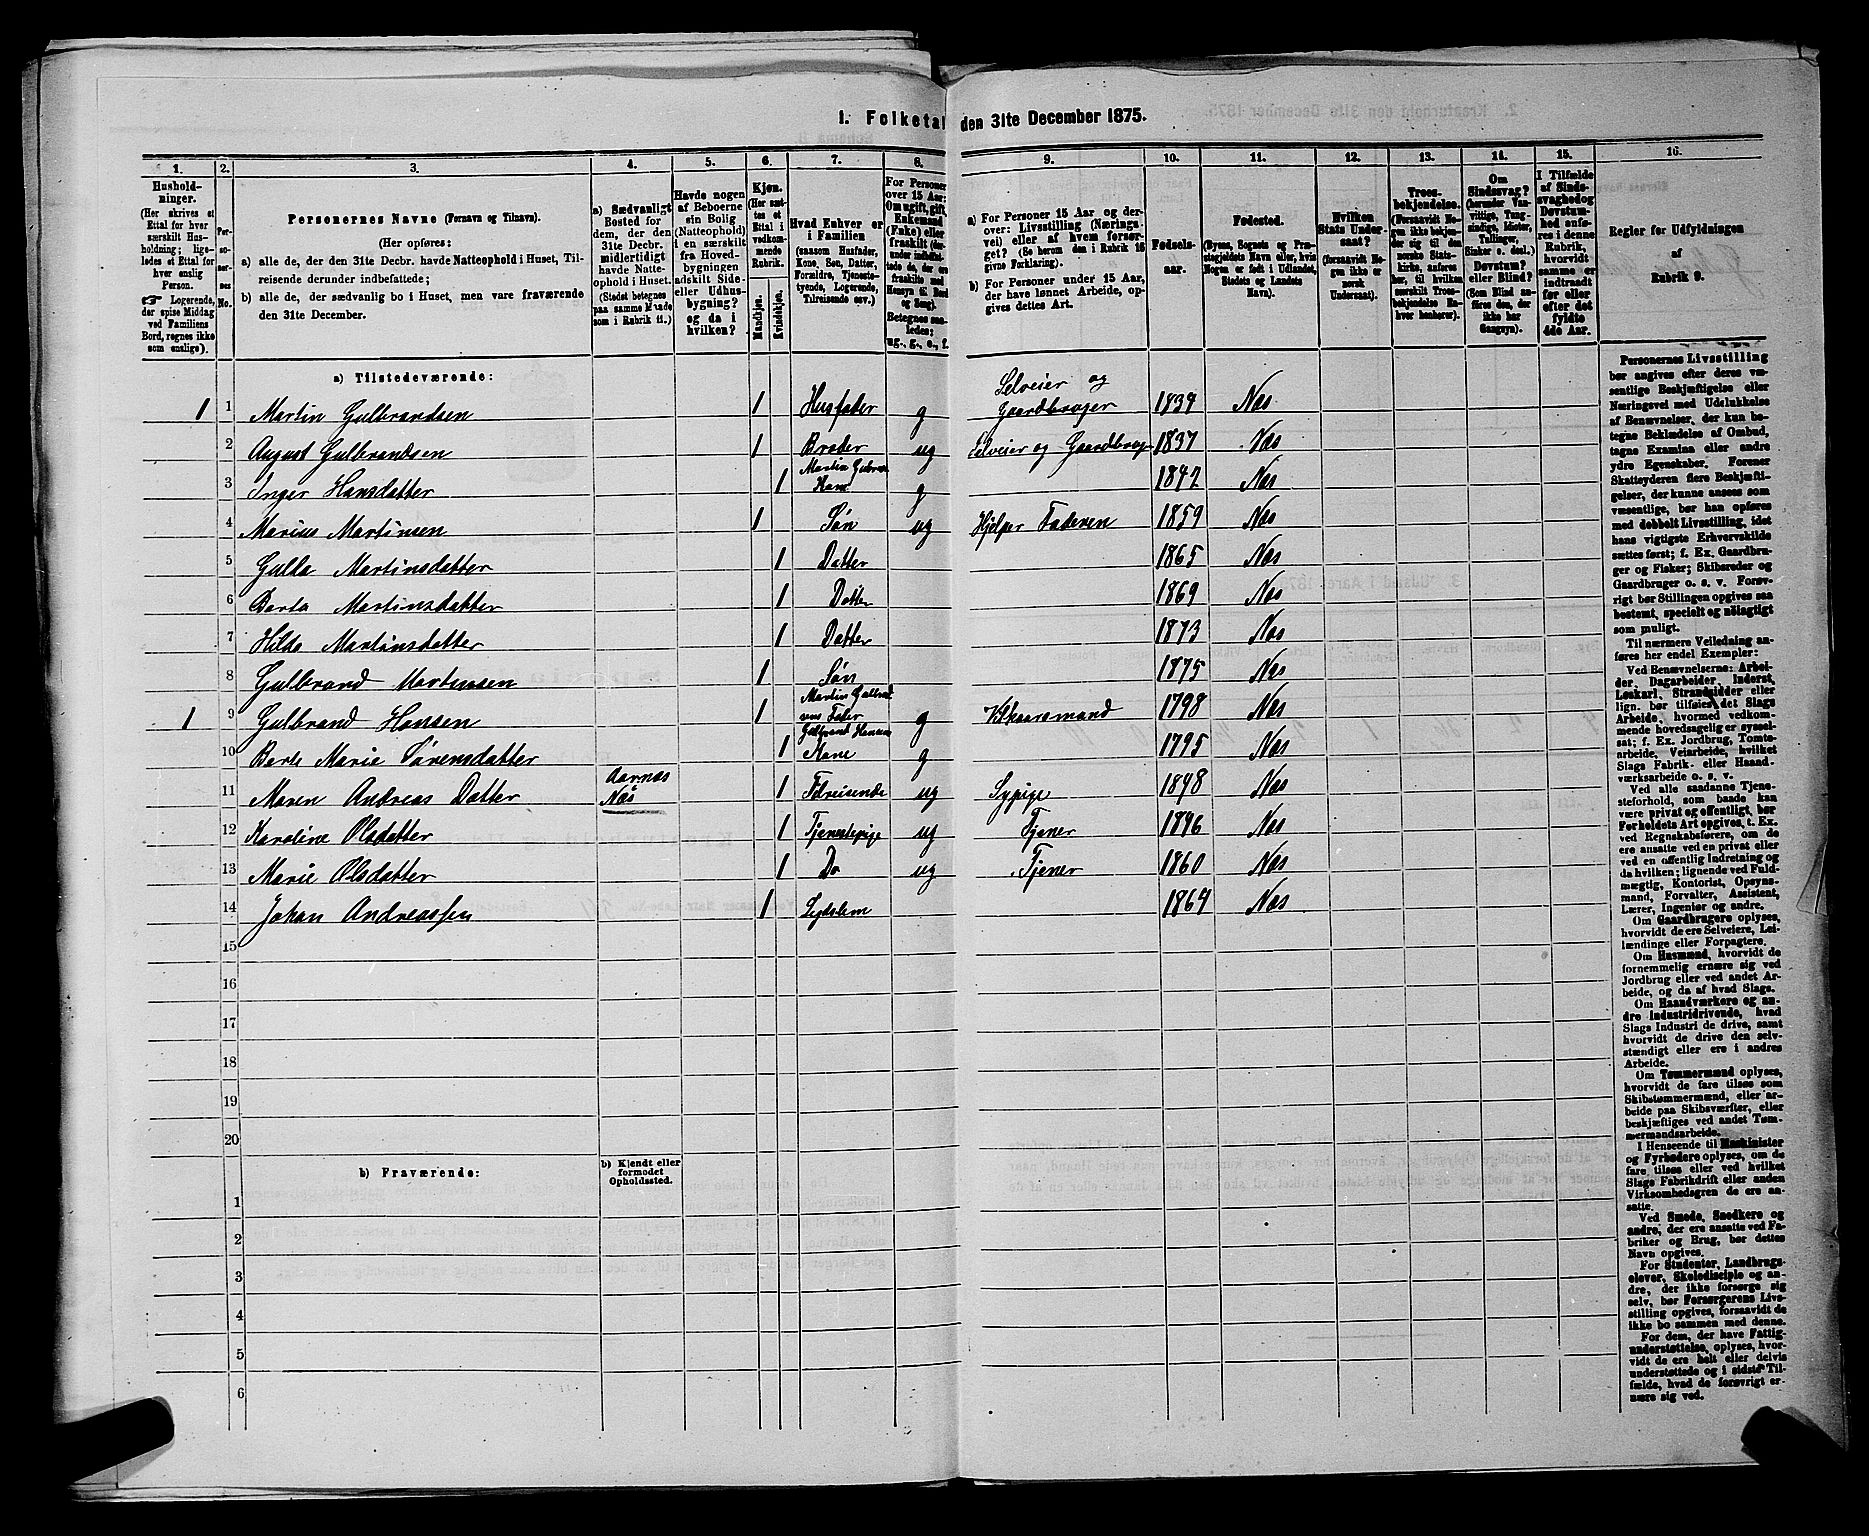 1. Folketal den 31te December 1875.
1. 2. 3. 4. 5. 6. 7. 8. 9. 10. 11. 12. 13. 14. 15. 16.
Hushold-
ninger.
(Her skrives et
Ettal for hver
særskilt Hus-
holdning; lige-
ledes et Ettal for
hver enslig
Person.
☞ Logerende,
der spise Middag
ved Familiens
Bord, regnes ikke
som enslige).
Per-
so-
ner-
nes
No.
Personernes Navne (Fornavn og Tilnavn).
(Her opføres:
a) alle de, der den 31te Decbr. havde Natteophold i Huset, Til-
reisende derunder indbefattede;
b) alle de, der sædvanlig bo i Huset, men vare fraværende
den 31te December.
a) Sædvanligt
Bosted for
dem, der den
31te Decbr.
midlertidigt
havde Natte-
ophold i Huset.
(Stedet betegnes
paa samme Maade
som i Rubrik 11.)
Havde nogen
af Beboerne
sin Bolig
(Natteophold)
i en særskilt
fra Hoved-
bygningen
adskilt Side-
eller Udhus-
bygning?
og da i
hvilken?
Kjøn.
(Her sæt-
tes et
Ettal i
vedkom-
mende
Rubrik.
Mandkjøn.
Kvindekjøn.
Hvad Enhver er
i Familien
(saasom Husfader,
Kone, Søn, Datter,
Forældre, Tjeneste-
tyende, Logerende,
Tilreisende osv.)
For Personer
over 15 Aar:
Om ugift, gift,
Enkemand
(Enke) eller
fraskilt
Betegnes saa-
ledes:
ug., g., e., f.
a) For Personer 15 Aar og der-
over: Livsstilling (Nærings-
vei) eller af hvem forsør-
get? (Se herom den i Rubrik 16
givne Forklaring).
b) For Personer under 15 Aar,
der have lønnet Arbeide, op-
gives dettes Art.
Fødsels-
aar.
Fødested.
(Byens, Sognets og Præ-
stegjeldets Navn eller, hvis
Nogen er født i Udlandet,
Stedets og Landets
Navn).
Hvilken
Stats Under-
saat?
(forsaavidt No-
gen ikke er
norsk
Undersaat).
Troes-
bekjendelse.
(Forsaavidt No-
gen ikke bekjen-
der sig til den
norske Stats-
kirke, anføres
her, til hvilken
særskilt Troes-
bekjendelse En-
hver henhører).
Om
Sindssvag?
(herunder Van-
vittige, Tung-
sindige, Idioter,
Tullinger,
Sinker o. desl.)
Døvstum?
eller Blind?
(Som Blind an-
føres den, der
ikke har
Gangsyn).
I Tilfælde
af Sinds-
svaghed og
Døvstum-
hed anfø-
res i denne
Rubrik,
hvorvidt
samme er
indtraadt
før eller
efter det
fyldte
4de Aar.
Regler for Udfyldningen
af
Rubrik 9.
a) Tilstedeværende:
1 1 Martin Gulbrandsen 1 Husfader g Selveier og Gaardbruger 1839 Næs
2 August Gulbrandsen 1 Broder ug Selveier og Gaardbrug 1837 Næs
3 Inger Hansdatter 1 Martin Gulbran Kone g 1842 Næs
4 Marius Martinsen 1 Søn ug Hjelper Faderen 1859 Næs
5 Gulda Martinsdatter 1 Datter 1865 Næs
6 Berta Martinsdatter 1 Datter 1869 Næs
7 Hilda Martinsdatter 1 Datter 1873 Næs
8 Gulbrand Martinsen 1 Søn 1875 Næs
1 9 Gulbrand Hansen 1 Martin Gulbrandsens Fader g Vilkaarsmand 1798 Næs
10 Berte Marie Sørensdatter 1 Gulbrand Hansens Kone g 1795 Næs
11 Maren Andreas Datter Aarnæs Næs 1 Tilreisende ug Sypige 1848 Næs
12 Karoline Olsdatter 1 Tjenestepige ug Tjener 1846 Næs
13 Marie Olsdatter 1 Do ug Tjener 1860 Næs
14 Johan Andreassen 1 Legdslem 1864 Næs
15
16
17
18
19
20
b) Fraværende:
b) Kjendt eller
formodet
Opholdssted.
1
2
3
4
5
6
Personernes Livsstilling
bør angives efter deres væ-
sentlige Beskjæftigelse eller
Næringsvei med Udelukkelse
af Benævnelser, der kun be-
tegne Beklædelse af Ombud,
tagne Examina eller andre
ydre Egenskaber. Forener
Skatteyderen flere Beskjæfti-
gelser, der kunne ansees som
væsentlige, bør han opføres
med dobbelt Livsstilling, idet
hans vigtigste Erhvervskilde
sættes først; f. Ex. Gaardbru-
ger og Fisker; Skibsreder og
Gaardbruger o. s. v. Forøv-
rigt bør Stillingen opgives saa
bestemt, specielt og nøiagtigt
som muligt.
Til nærmere Veiledning an-
føres her endel Exempler:
Ved Benævnelserne: Arbei-
der, Dagarbeider, Inderst,
Løskarl, Strandsidder eller
lign. bør tilføies det Slags
Arbeide, hvormed vedkom-
mende hovedsagelig er syssel-
sat; f. Ex. Jordbrug, Tomte-
arbeide, Veiarbeide, hvilket
Slags Fabrik- eller Haand-
værksarbeide o. s. v.
Ved alle saadanne Tjene-
steforhold, som baade kan
være privat og offentligt, bør
Forholdets Art opgives, t. Ex.
ved Regnskabsførere, om de
ere ansatte ved en privat eller
ved en offentlig Indretning og
da hvilken; lignende ved Fuld-
mægtig, Kontorist, Opsyns-
mand, Forvalter, Assistent,
Lærer, Ingeniør og andre.
Om Gaardbrugere oplyses,
hvorvidt de ere Selveiere, Lei-
lændinge eller Forpagtere.
Om Husmænd, hvorvidt de
fornemmelig ernære sig ved
Jordbrug eller ved andet Ar-
beide, og da af hvad Slags.
Om Haandværkere og an-
dre Industridrivende, hvad
Slags Industri de drive, samt
hvorvidt de drive den selv-
stændigt eller ere i andres
Arbeide.
Om Tømmermænd oplyses,
hvorvidt de fare tilsøs som
Skibstømmermænd, eller ar-
beide paa Skibsværfter, eller
beskjæftiges ved andet Tøm-
mermandsarbeide.
I Henseende til Maskinister
og Fyrbødere oplyses, om de
fare tilsøs eller ved hvilket
Slags Fabrikdrift eller anden
Virksomhedsgren de ere an-
satte.
Ved Smede, Snedkere og
andre, der ere ansatte ved Fa-
briker og Brug, bør dettes
Navn opgives.
For Studenter, Landbrugs-
elever, Skoledisciple og an-
dre, der ikke forsørge sig
selv, bør Forsørgerens Livs-
stilling opgives, forsaavidt de
ikke bo sammen med denne.
For dem, der have Fattig-
understøttelse, oplyses, hvor-
vidt de ere helt eller delvis
understøttede og i sidste Til-
fælde, hvad de forøvrigt er-
nære sig ved.